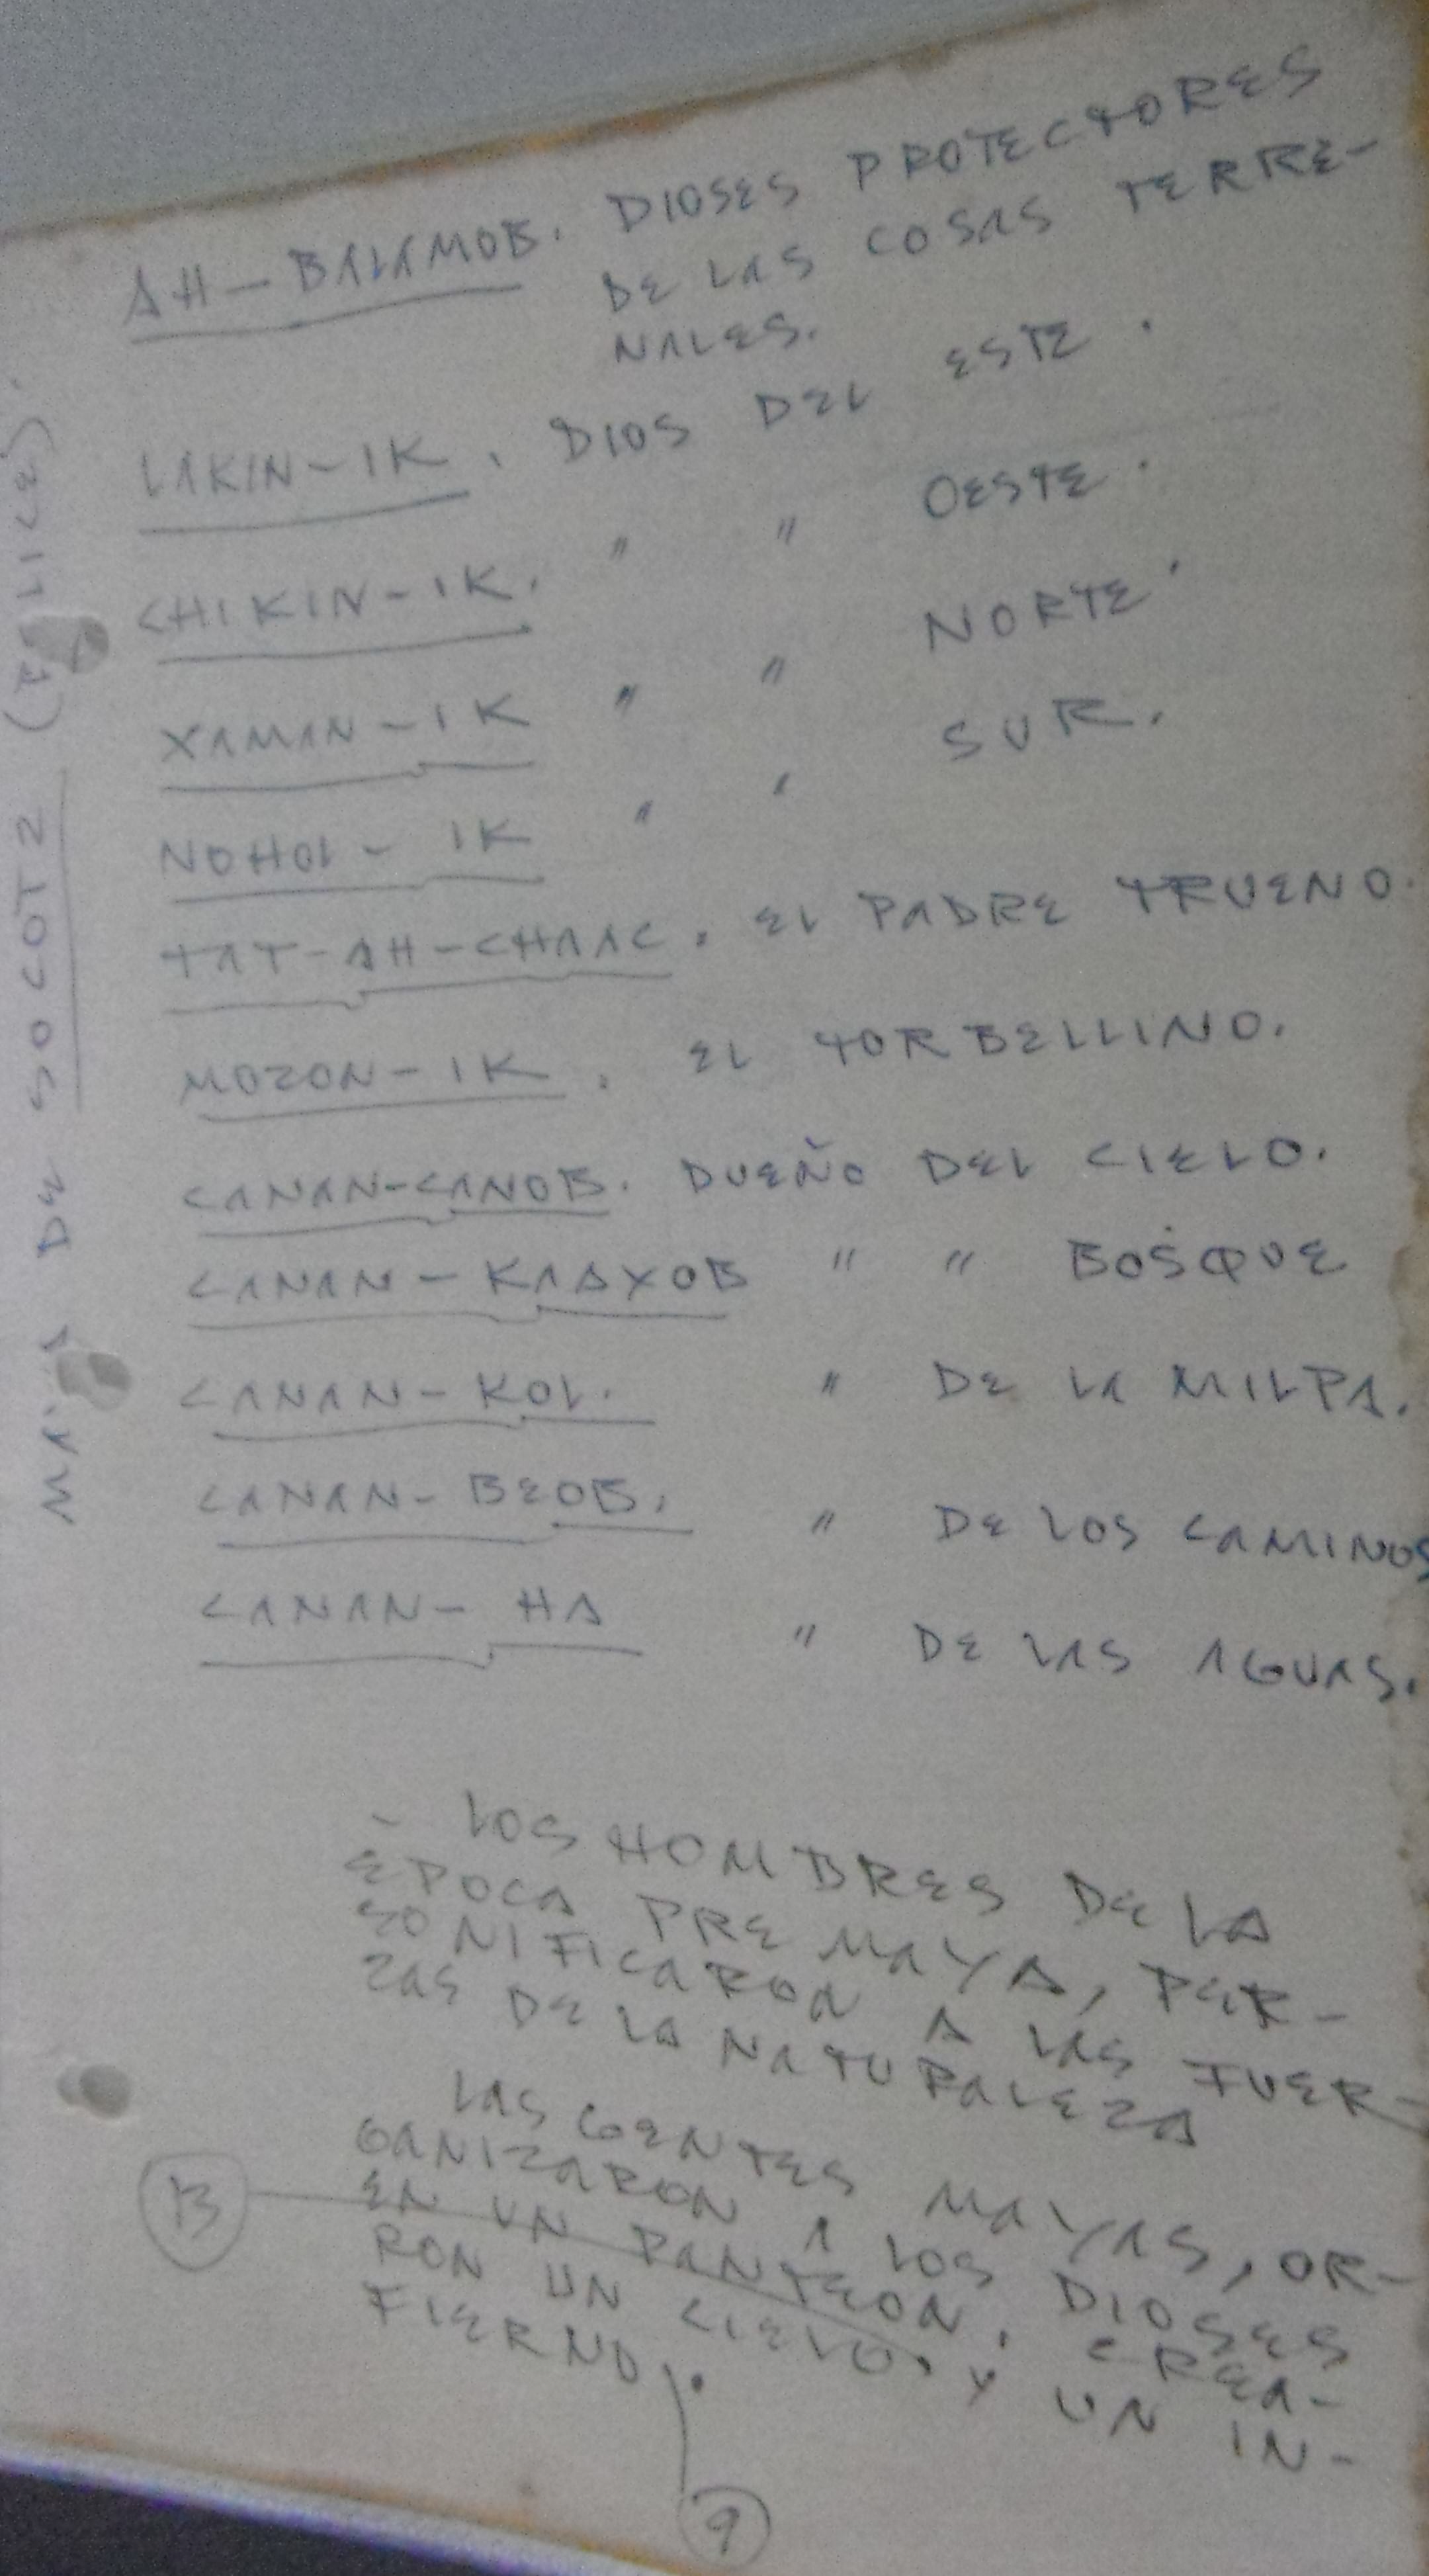 AH-BALAMOB. DIOSES PROTECTORES
DE LAS COSAS TERRE-
NALES.
LAKIN-IK. DIOS DEL ESTE.
CHIKIN-IK. " " OESTE.
XAMAN-IK " " NORTE.
NOHOL-IK " " SUR.
TAT-AH-CHAAC. EL PADRE TRUENO.
MOZON-IK. EL TORBELLINO.
CANAN-CANOB. DUEÑO DEL CIELO.
CANAN-KAAXOB " " BOSQUE
CANAN-KOL. " DE LA MILPA.
CANAN-BEOB. " DE LOS CAMINOS
CANAN-HA " DE LAS AGUAS.
- LOS HOMBRES DE LA
EPOCA PRE MAYA, PER-
SONIFICARON A LAS FUER-
ZAS DE LA NATURALEZA
LAS GENTES MAYAS, OR-
GANIZARON A LOS DIOSES
EN UN PANTEON, CREA-
RON UN CIELO, Y UN IN-
FIERNO.
13
9
DE SOCOTZ (BELICE).